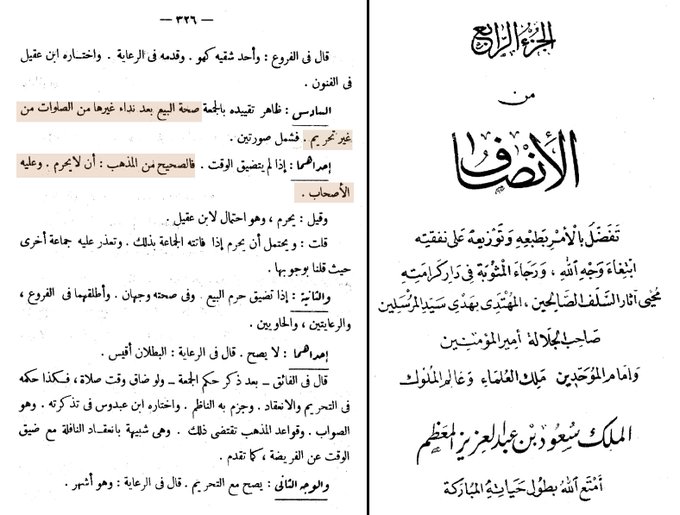 الجزء الرابع
من
الأنصاف
تفضل بالأمر بطبعه وتوزيعه على نفقته
ابتغاء وجه الله، ورجاء المثوبة في دار كرامته
محيي آثار السلف الصالحين، المهتدى بهدى سيد المرسلين
صاحب الجلالة أمير المؤمنين
وإمام الموحدين ملك العلماء وعالم الملوك
الملك سعود بن عبد العزيز المعظم
أمتع الله بطول حياته المباركة
— ٣٢٦ —
قال فى الفروع : وأحد شقيه كهو . وقدمه فى الرعاية . واختاره ابن عقيل
فى الفنون .
السادس : ظاهر تقييده بالجمعة صحة البيع بعد نداء غيرها من الصلوات من
غير تحريم . فشمل صورتين .
إحداهما : إذا لم يتضيق الوقت . فالصحيح من المذهب : أن لا يحرم . وعليه
الأصحاب .
وقيل : يحرم ، وهو احتمال لابن عقيل .
قلت : ويحتمل أن يحرم إذا فاتته الجماعة بذلك . وتعذر عليه جماعة أخرى
حيث قلنا بوجوبها .
والثانية : إذا تضيق حرم البيع . وفى صحته وجهان . وأطلقهما فى الفروع ،
والرعايتين ، والحاويين .
إحداهما : لا يصح . قال فى الرعاية : البطلان أقيس .
قال فى الفائق – بعد ذكر حكم الجمعة – ولو ضاق وقت صلاة ، فكذا حكمه
فى التحريم والانعقاد . وجزم به الناظم . واختاره ابن عبدوس فى تذكرته . وهو
الصواب . وقواعد المذهب تقتضى ذلك . وهى شبيهة بانعقاد النافلة مع ضيق
الوقت عن الفريضة ، كما تقدم .
والوجه الثانى : يصح مع التحريم . قال فى الرعاية : وهو أشهر .